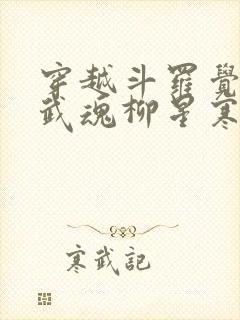 穿越斗羅覺
武魂柳星寒
寒武記